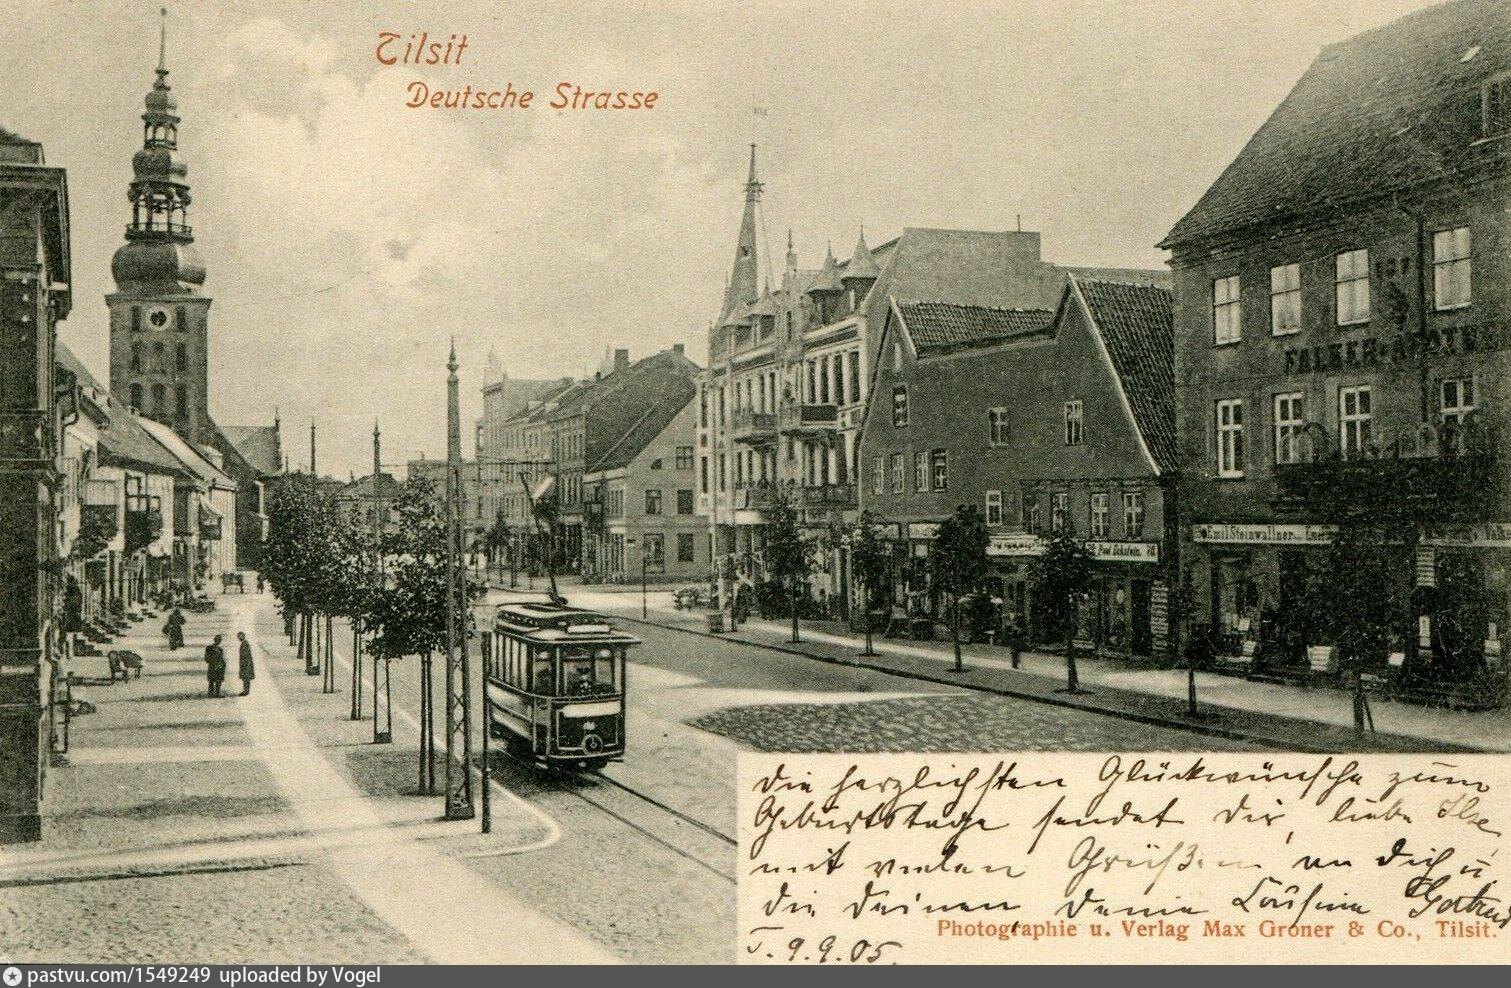 Tilsit
Deutsche Strasse
FALKEN-APOTHE
Emil Steinwallner
Die herzlichsten Glückwünsche zum
Geburtstage sendet Dir, liebe Ilse,
mit vielen Grüßen an Dich u.
die Deinen Deine Cousine
Photographie u. Verlag Max Groner & Co., Tilsit.
T. 9.9.05.
pastvu.com/1549249 uploaded by Vogel